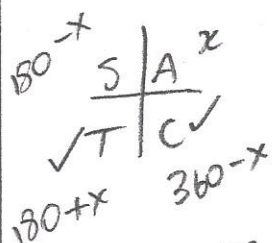 180-x S|A x
✓T|C✓
180+x 360-x